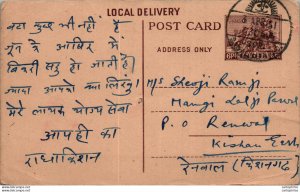 LOCAL DELIVERY
POST CARD
ADDRESS ONLY
INDIA
बटा कुछ भी नहीं है
जून के आखिर में
बिक्री सरु हो जाती है।
ज्यादा आपको क्या लिखुं।
मेरे लायक योग्य सेवा
आपही का
राधाकिशन
M/s Sheoji Ramji
Mangi Lalji
P. O Renwal
Kishan Garh
रेनवाल (किशनगढ़)